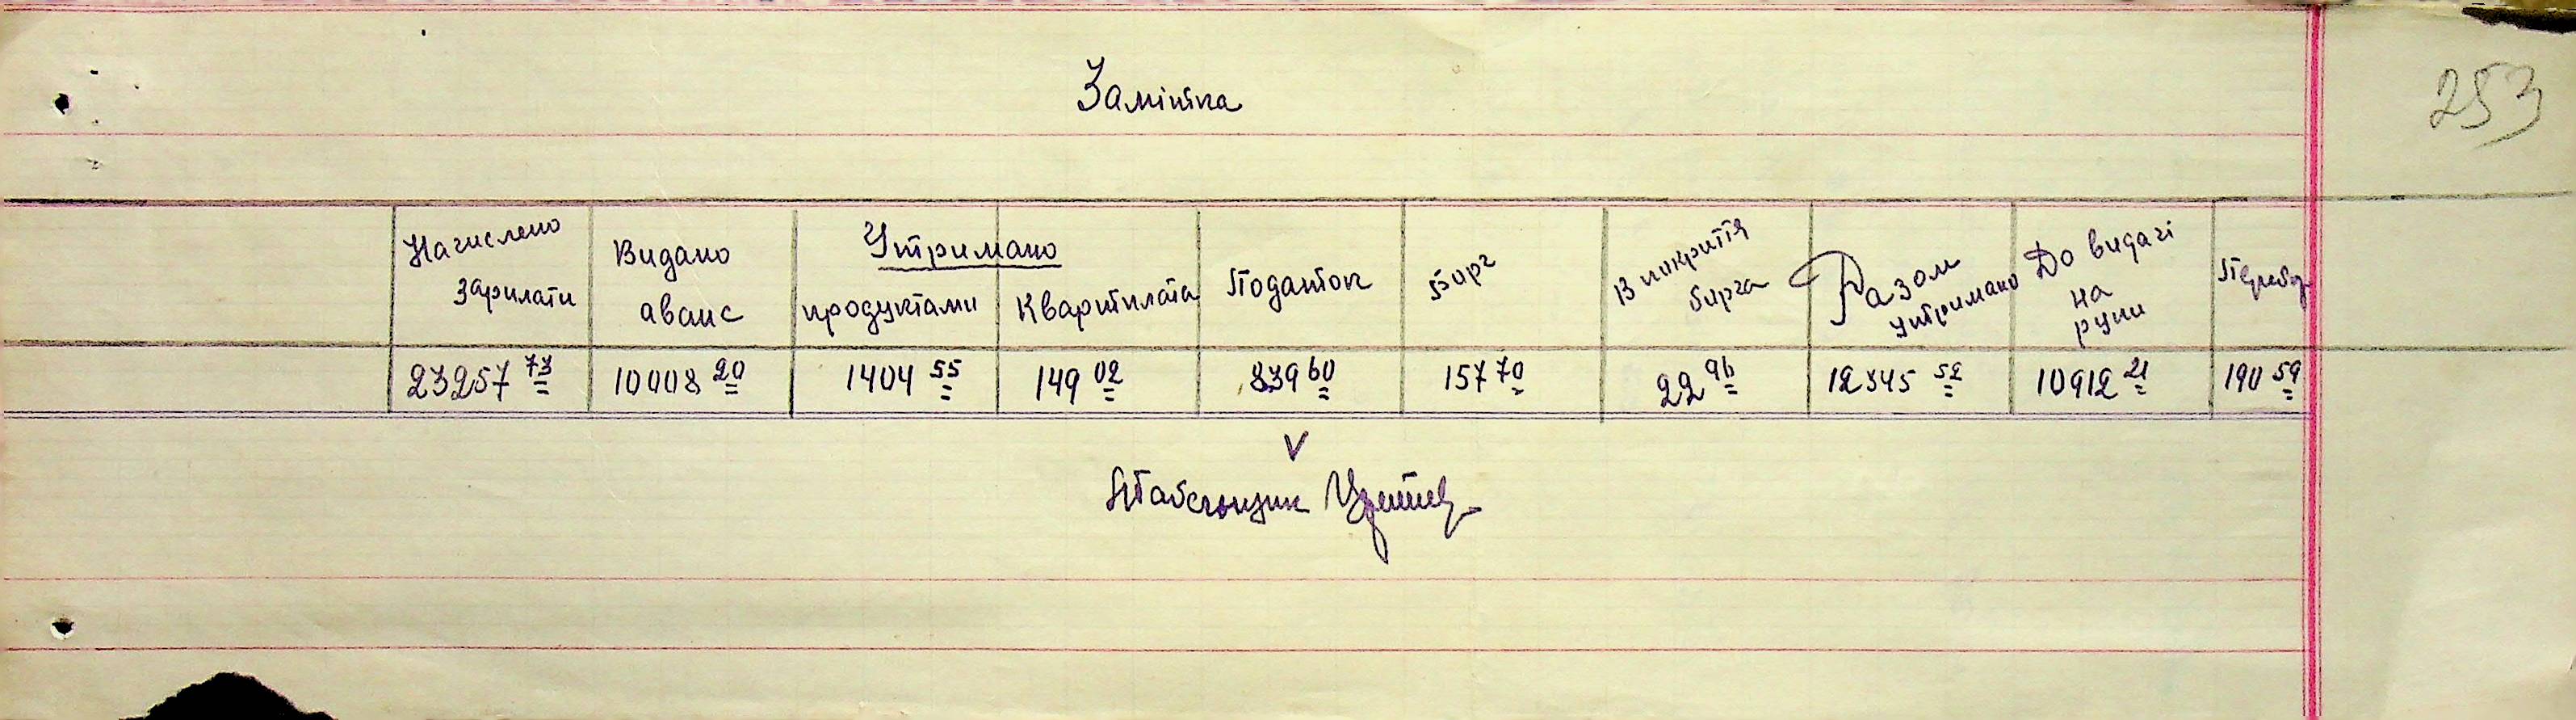 Замітка
253
Начислено зарплати
Видано аванс
Утримано
продуктами
Квартплата
Податок
Борг
В покриття борга
Разом утримано
До видачі на руки
Перебор
23257 73 10008 20 1404 55 149 02 839 60 157 70 22 96 12545 52 10912 21 190 59
V
Табельщик